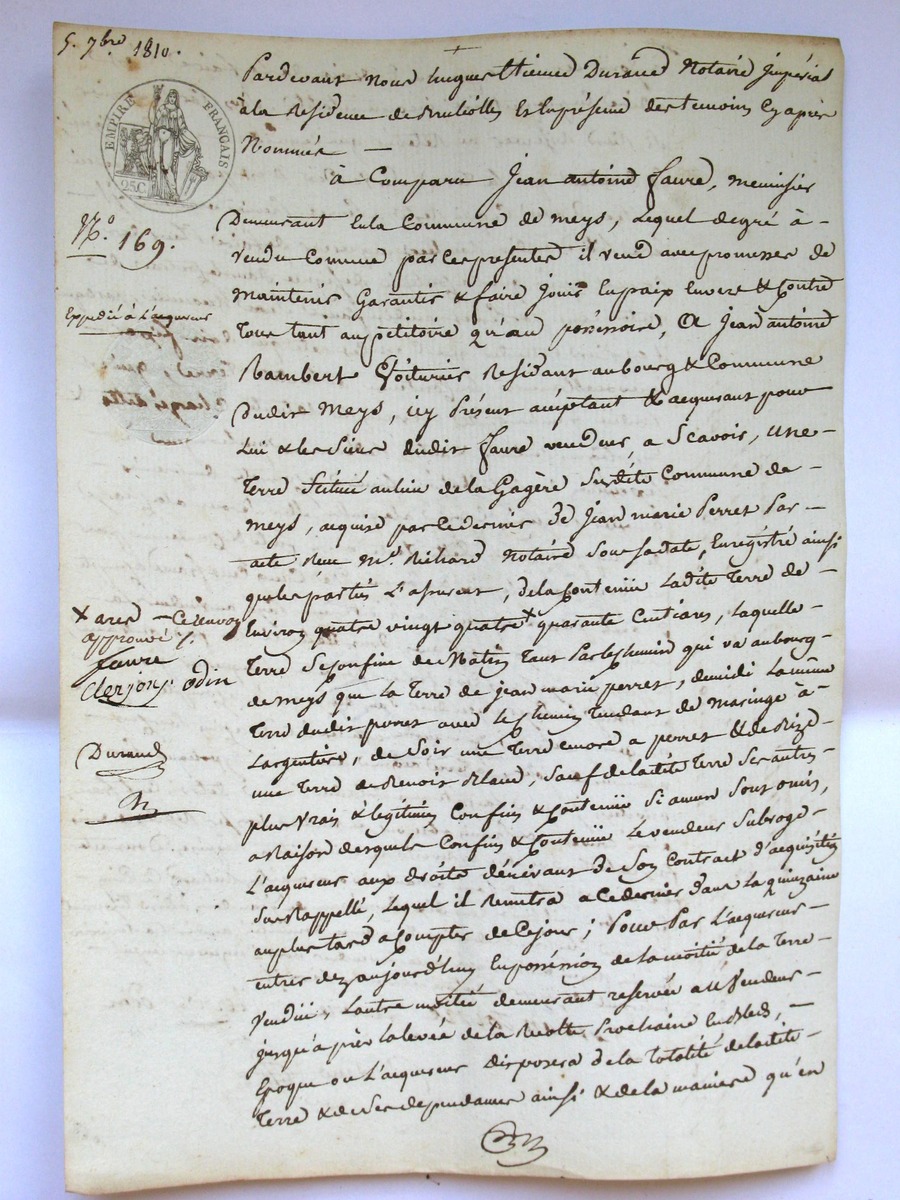 5. 7bre 1810.
EMPIRE FRANÇAIS
25C.
No. 169.
Expedié à L'acquereur
Pardevant Nous hugues Etienne Durand Notaire Impérial
à la Residence de & En présence des temoins Cyaprès
Nommés —
à Comparu Jean antoine faure, menuisier
Demeurant En la Commune de meys, lequel de gré à -
Vendu Comme par Ces présentes il vend avec promesses de
Maintenir Garantir & faire Jouir En paix Envers & Contre
Tous tant au pétitoire qu'au possessoire, A Jean antoine
Rambert Voiturier Residant au bourg & Commune
Dudit Meys, icy Présent acceptant & acquerant pour
Lui & les Siens dudit faure vendeur, a Scavoir, une -
Terre Scituée au lieu de la Gagère Susdite Commune de -
Meys, acquise par Ce dernier de Jean marie Perret Par -
acte Reçu Me. Richard Notaire Sous Sa date, Enregistré ainsi
que les parties L'assurent, de la Contenüe Ladite Terre de -
Environ quatre vingt quatre x quarante Centiares, Laquelle -
Terre Se Confine de Matin Tant Par le Chemin qui va au bourg -
de meys que La Terre de jean marie perret, de midi La même
Terre dudit perret avec le Chemin Tendant de maringe à -
Largentière, de Soir une Terre encore a perret & de Bize -
une Terre de Benoit, Sauf de ladite Terre Ses autres -
plus Vrais & legitimes Confins & Contenüe Si aucuns Sont omis,
a Raison desquels Confins & Contenüe Le vendeur Subroge -
L'acquereur aux droits dérivant de Son Contract d'acquisition
Sus Rappellé, Lequel il Remettra a Ce dernier dans La quinzaine
au plus tard a Compter de Ce jour; Pour Par L'acquereur -
entrer dez aujourd'huy En possession de la moitié de la Terre -
Vendüe, L'autre moitié demeurant reservée au Vendeur -
jusqu'après la levée de la Recolte Prochaine En Bled, -
Epoque ou L'acquereur disposera de la Totalité de ladite -
Terre & de Ses dependances ainsi & de la maniere qu'en
x ares - Ce renvoy
approuvé /.
faure
Clerjon. odin
Durand